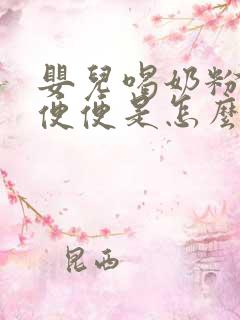 嬰兒喝奶粉
便便是怎麼
昆西